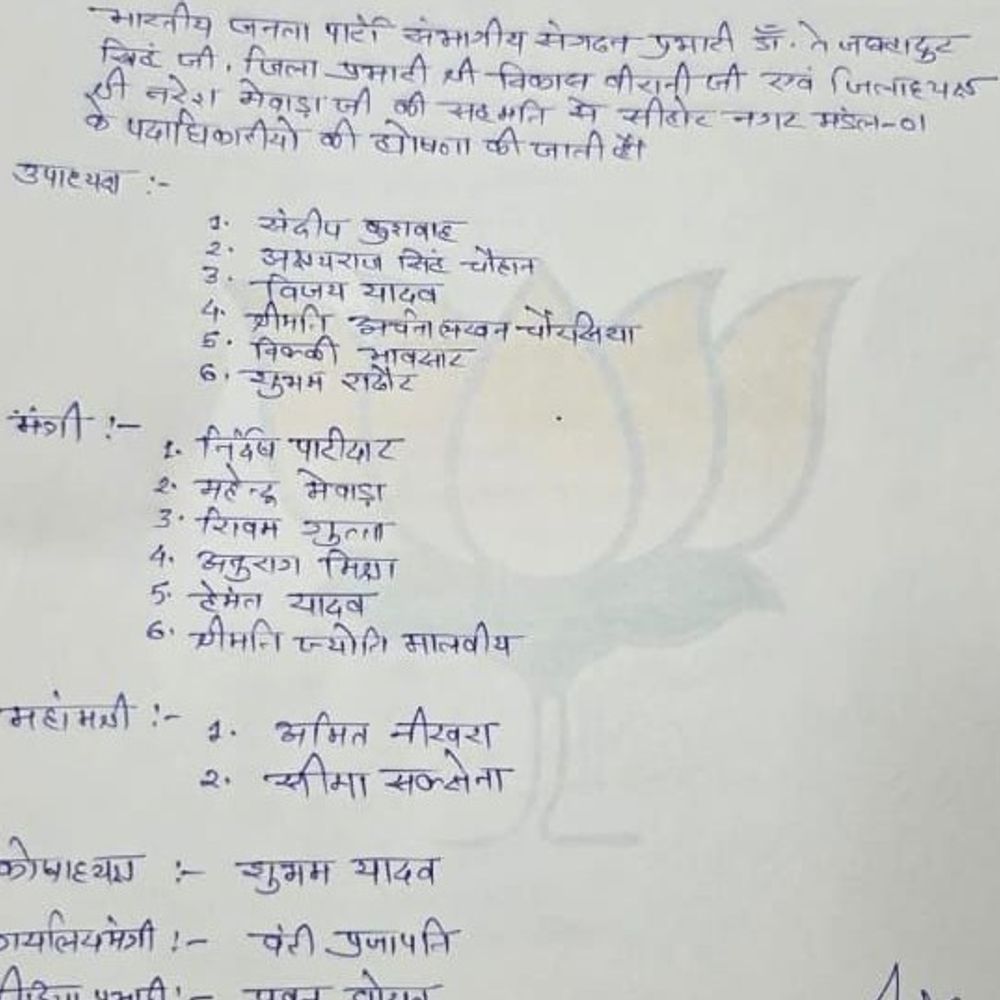 भारतीय जनता पार्टी संभागीय संगठन प्रभारी डॉ. तेजबहादुर
सिंह जी, जिला प्रभारी श्री विकास वीरानी जी एवं जिलाध्यक्ष
श्री नरेश मेवाड़ा जी की सहमति से सीहोर नगर मंडल-01
के पदाधिकारीयो की घोषणा की जाती है।
उपाध्यक्ष :-
1. संदीप कुशवाह
2. अक्षयराज सिंह चौहान
3. विजय यादव
4. श्रीमति अर्चना लखन चौरसिया
5. विक्की भावसार
6. शुभम राठौर
मंत्री :-
1. पाटीदार
2. महेन्द्र मेवाड़ा
3. शिवम शुक्ला
4. अनुराग मिश्रा
5. हेमंत यादव
6. श्रीमति ज्योति मालवीय
महांमंत्री :-
1. अमित नीखरा
2. सीमा सक्सेना
कोषाध्यक्ष :- शुभम यादव
कार्यालयमंत्री :- बंटी प्रजापति
मीडिया प्रभारी :- पवन